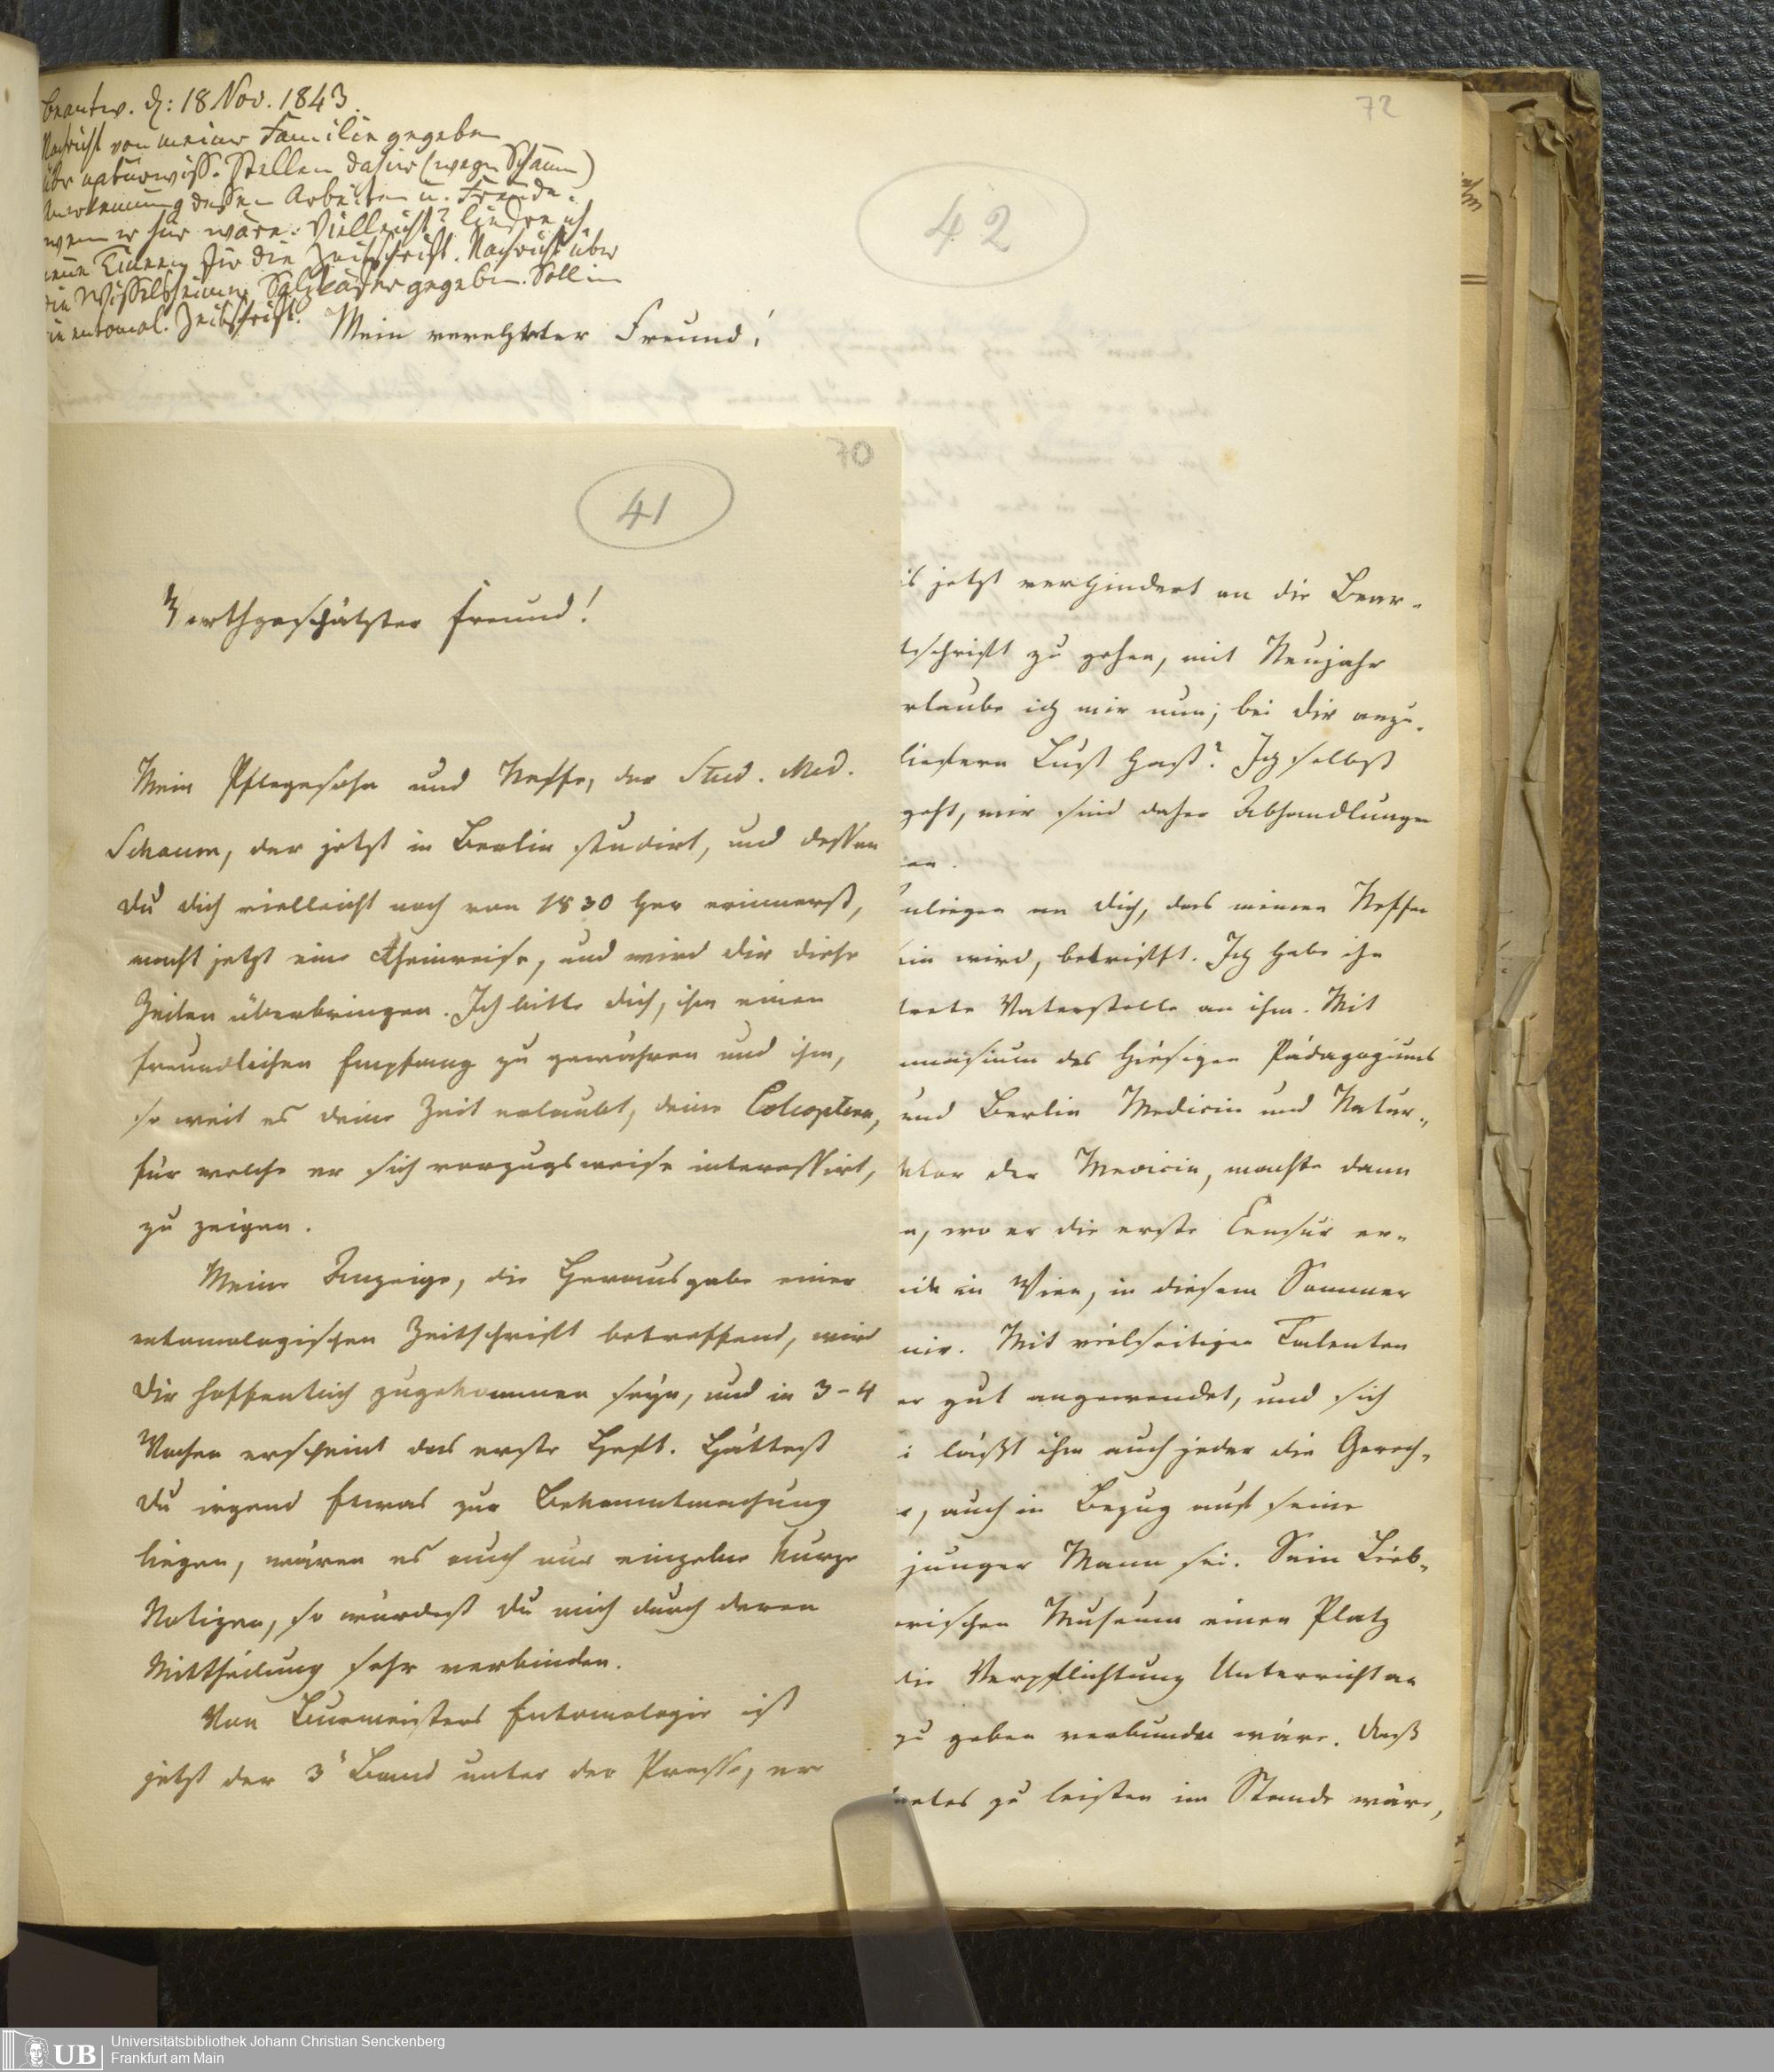 beantw. d: 18 Nov. 1843.
Nachricht von meiner Familie gegeben
über naturwiss. Stellen dahier (wegen Schaum)
Anerkennung dessen Arbeiten u. Freude,
wenn er hier wäre. Vielleicht? liefere ich
neue Tineen für die Zeitschrift. Nachricht über
die Wisselsheimer Salzkäfer gegeben. Soll in
die entomol. Zeitschrift.
72
42
Mein verehrter Freund!
70
41
Werthgeschätzter Freund!
Mein Pflegesohn und Neffe, der Stud. Med.
Schaum, der jetzt in Berlin studirt, und dessen
Du dich vielleicht noch von 1830 her erinnerst,
macht jetzt eine Rheinreise, und wird dir diese
Zeilen überbringen. Ich bitte dich, ihm einen
freundlichen Empfang zu gewähren und ihm,
so weit es deine Zeit erlaubt, deine Coleoptern,
für welche er sich vorzugsweise interessirt,
zu zeigen.
Meine Anzeige, die Herausgabe einer
entomologischen Zeitschrift betreffend, wird
Dir hoffentlich zugekommen seyn, und in 3-4
Wochen erscheint das erste Heft. Hättest
Du irgend Etwas zur Bekanntmachung
liegen, wären es auch nur einzelne kurze
Notizen, so würdest Du mich durch deren
Mittheilung sehr verbinden.
Von Burmeisters Entomologie ist
jetzt der 3 Band unter der Presse, er
is jetzt verhindert an die Bear-
tschrift zu gehen, mit Neujahr
rlaube ich mir nun, bei Dir anzu-
liefern Lust hast? Ich selbst
geht, mir sind daher Abhandlungen
en.
nliegen an Dich, das meinen Neffen
ein wird, betrifft. Ich habe ihn
trete Vaterstelle an ihm. Mit
mnasium des hiesigen Pädagogiums
und Berlin Medicin und Natur-
ktor der Medicin, machte dann
n, wo er die erste Censur er-
in Wien, in diesem Sommer
mir. Mit vielseitigen Talenten
er gut angewendet, und sich
i läßt ihm auch jeder die Gerech-
, auch in Bezug auf seine
junger Mann sei. Sein Lieb-
rischen Museum einen Platz
die Verpflichtung Unterricht an
zu geben verbunden wäre. Daß
netes zu leisten im Stande wäre,
UB
Universitätsbibliothek Johann Christian Senckenberg
Frankfurt am Main